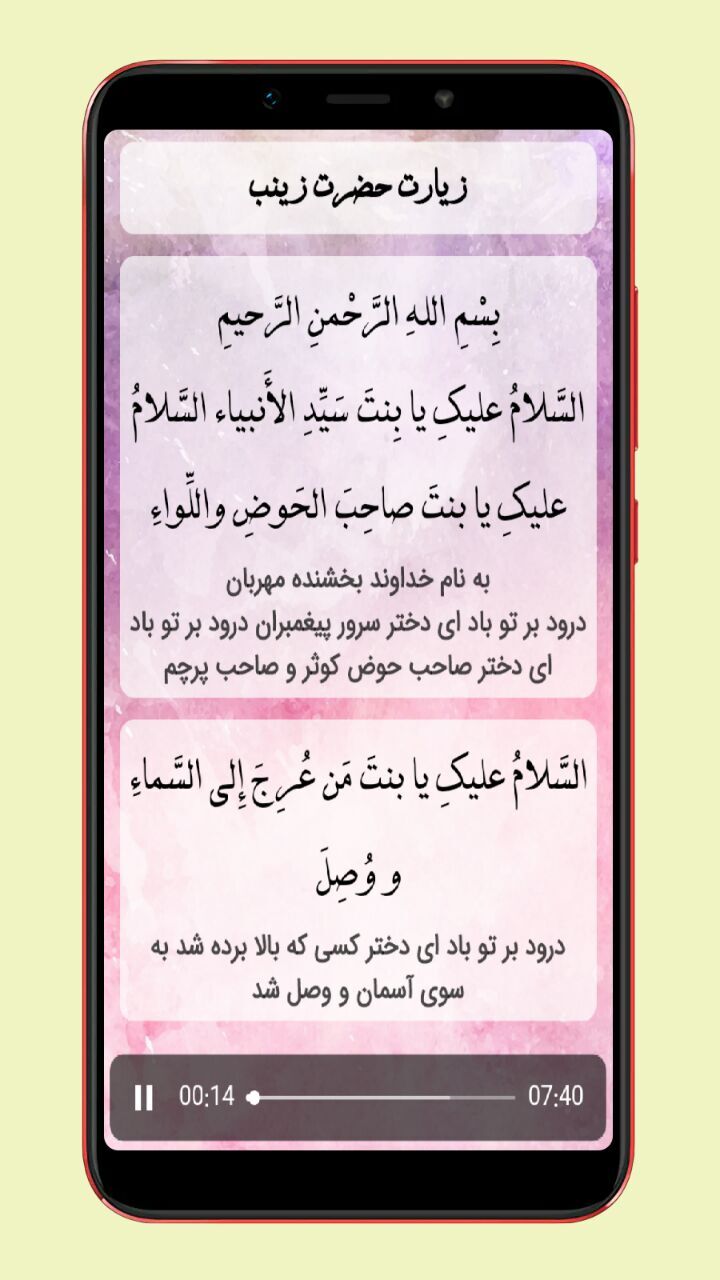 زیارت حضرت زینب
بِسْمِ اللهِ الرَّحْمنِ الرَّحیمِ
السَّلامُ علیکِ یا بِنتَ سَیِّدِ الأَنبیاء السَّلامُ
علیکِ یا بنتَ صاحِبَ الحَوضِ واللِّواءِ
به نام خداوند بخشنده مهربان
درود بر تو باد ای دختر سرور پیغمبران درود بر تو باد
ای دختر صاحب حوض کوثر و صاحب پرچم
السَّلامُ علیکِ یا بنتَ مَن عُرِجَ إِلی السَّماءِ
و وُصِلَ
درود بر تو باد ای دختر کسی که بالا برده شد به
سوی آسمان و وصل شد
00:14 07:40